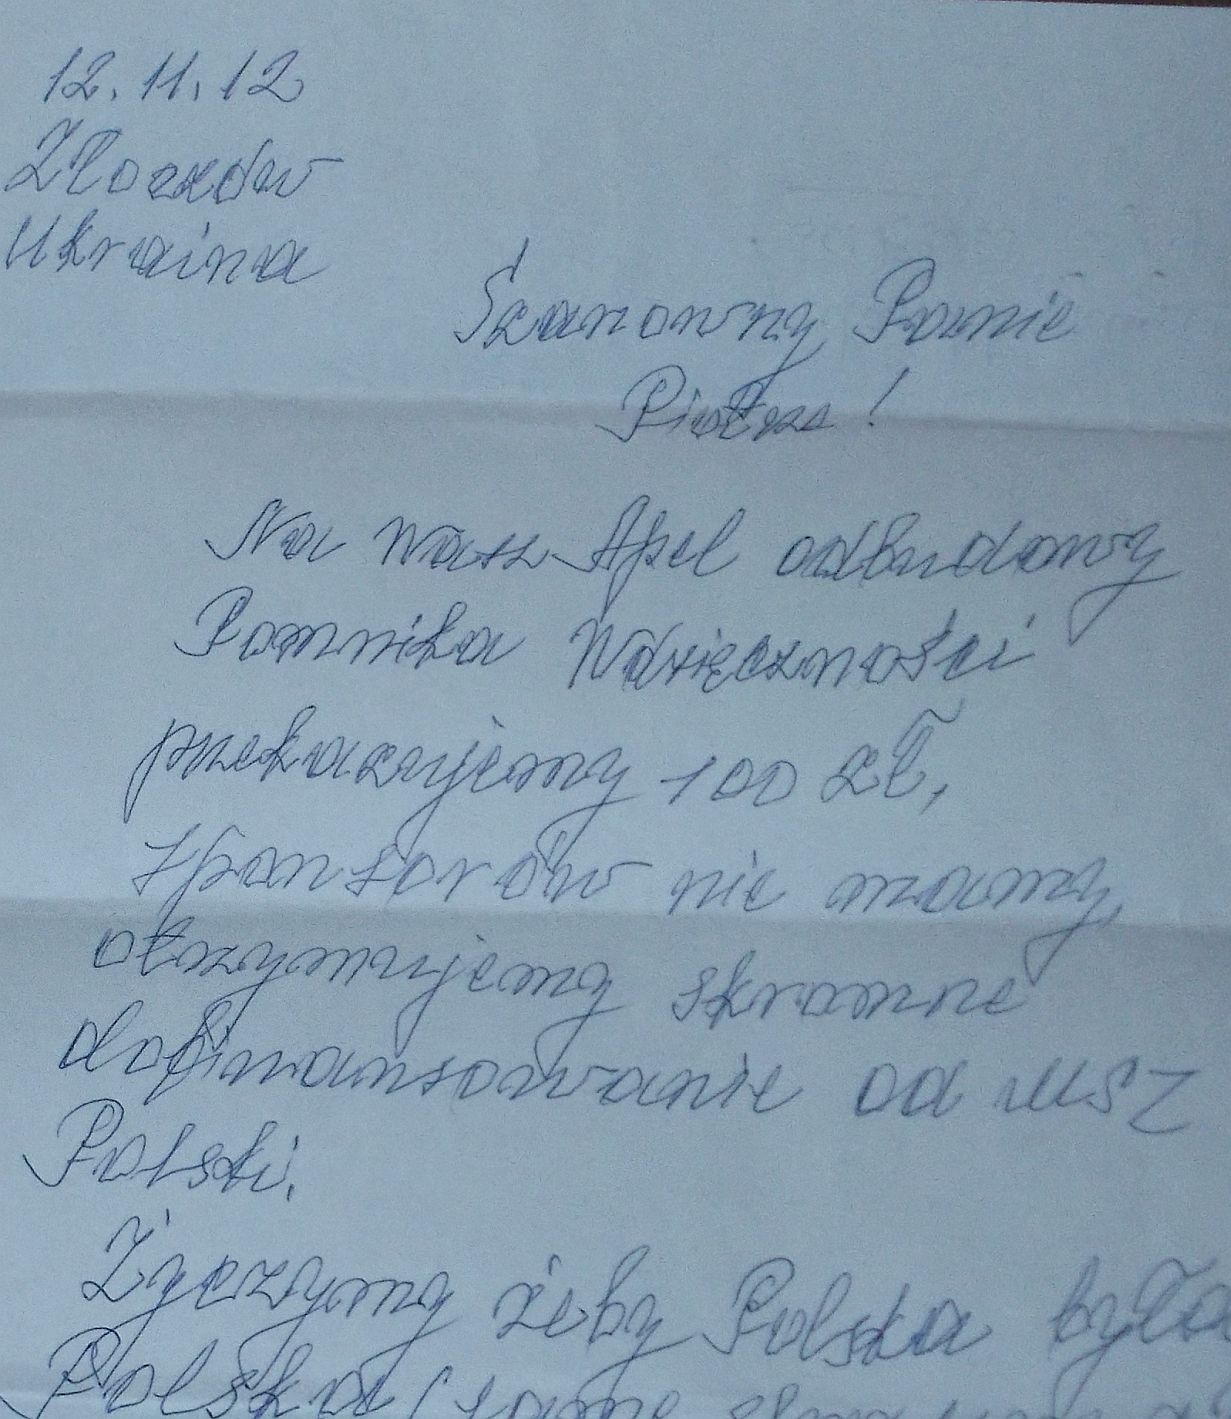 12.11.12
Złoczów
Ukraina
Szanowny Panie
Piotrze!
Na Wasz Apel odbudowy
Pomnika Wdzięczności
przekazujemy 100 zł,
sponsorów nie mamy,
otrzymujemy skromne
dofinansowanie od MSZ
Polski.
Życzymy żeby Polska była
Polską (